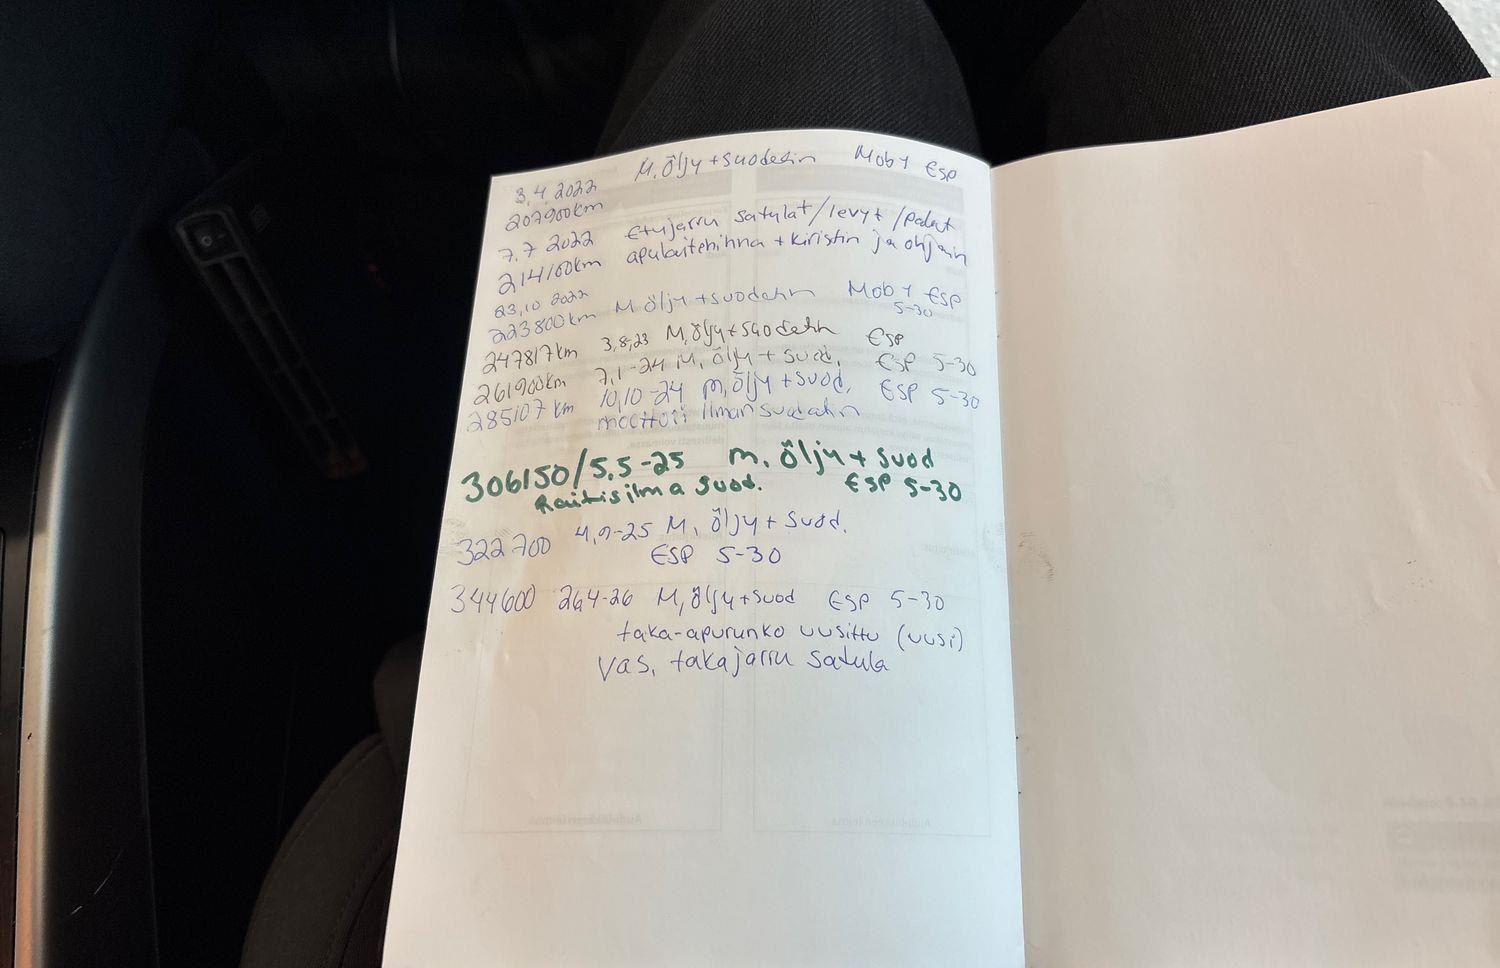 3.4.2022 M. Öljy + suodatin Mob 1 ESP
207900km
7.7 2022 Etujarru satulat/levyt/palat
214100km apulaitehihna + kiristin ja ohjain
23.10 2022 M öljy + suodatin Mob 1 ESP
223800km 5-30
247817km 3,8,23 M, öljy + suodatin ESP
261900km 7,1-24 M, öljy + suod, ESP 5-30
285107 km 10,10-24 m, öljy + suod, ESP 5-30
moottori ilmansuodatin
306150/5.5-25 m. öljy + suod
Raitisilma suod. ESP 5-30
322700 4,9-25 M, öljy + suod.
ESP 5-30
344600 26,4-26 M, öljy + suod ESP 5-30
taka-apurunko uusittu (uusi)
Vas, takajarru satula